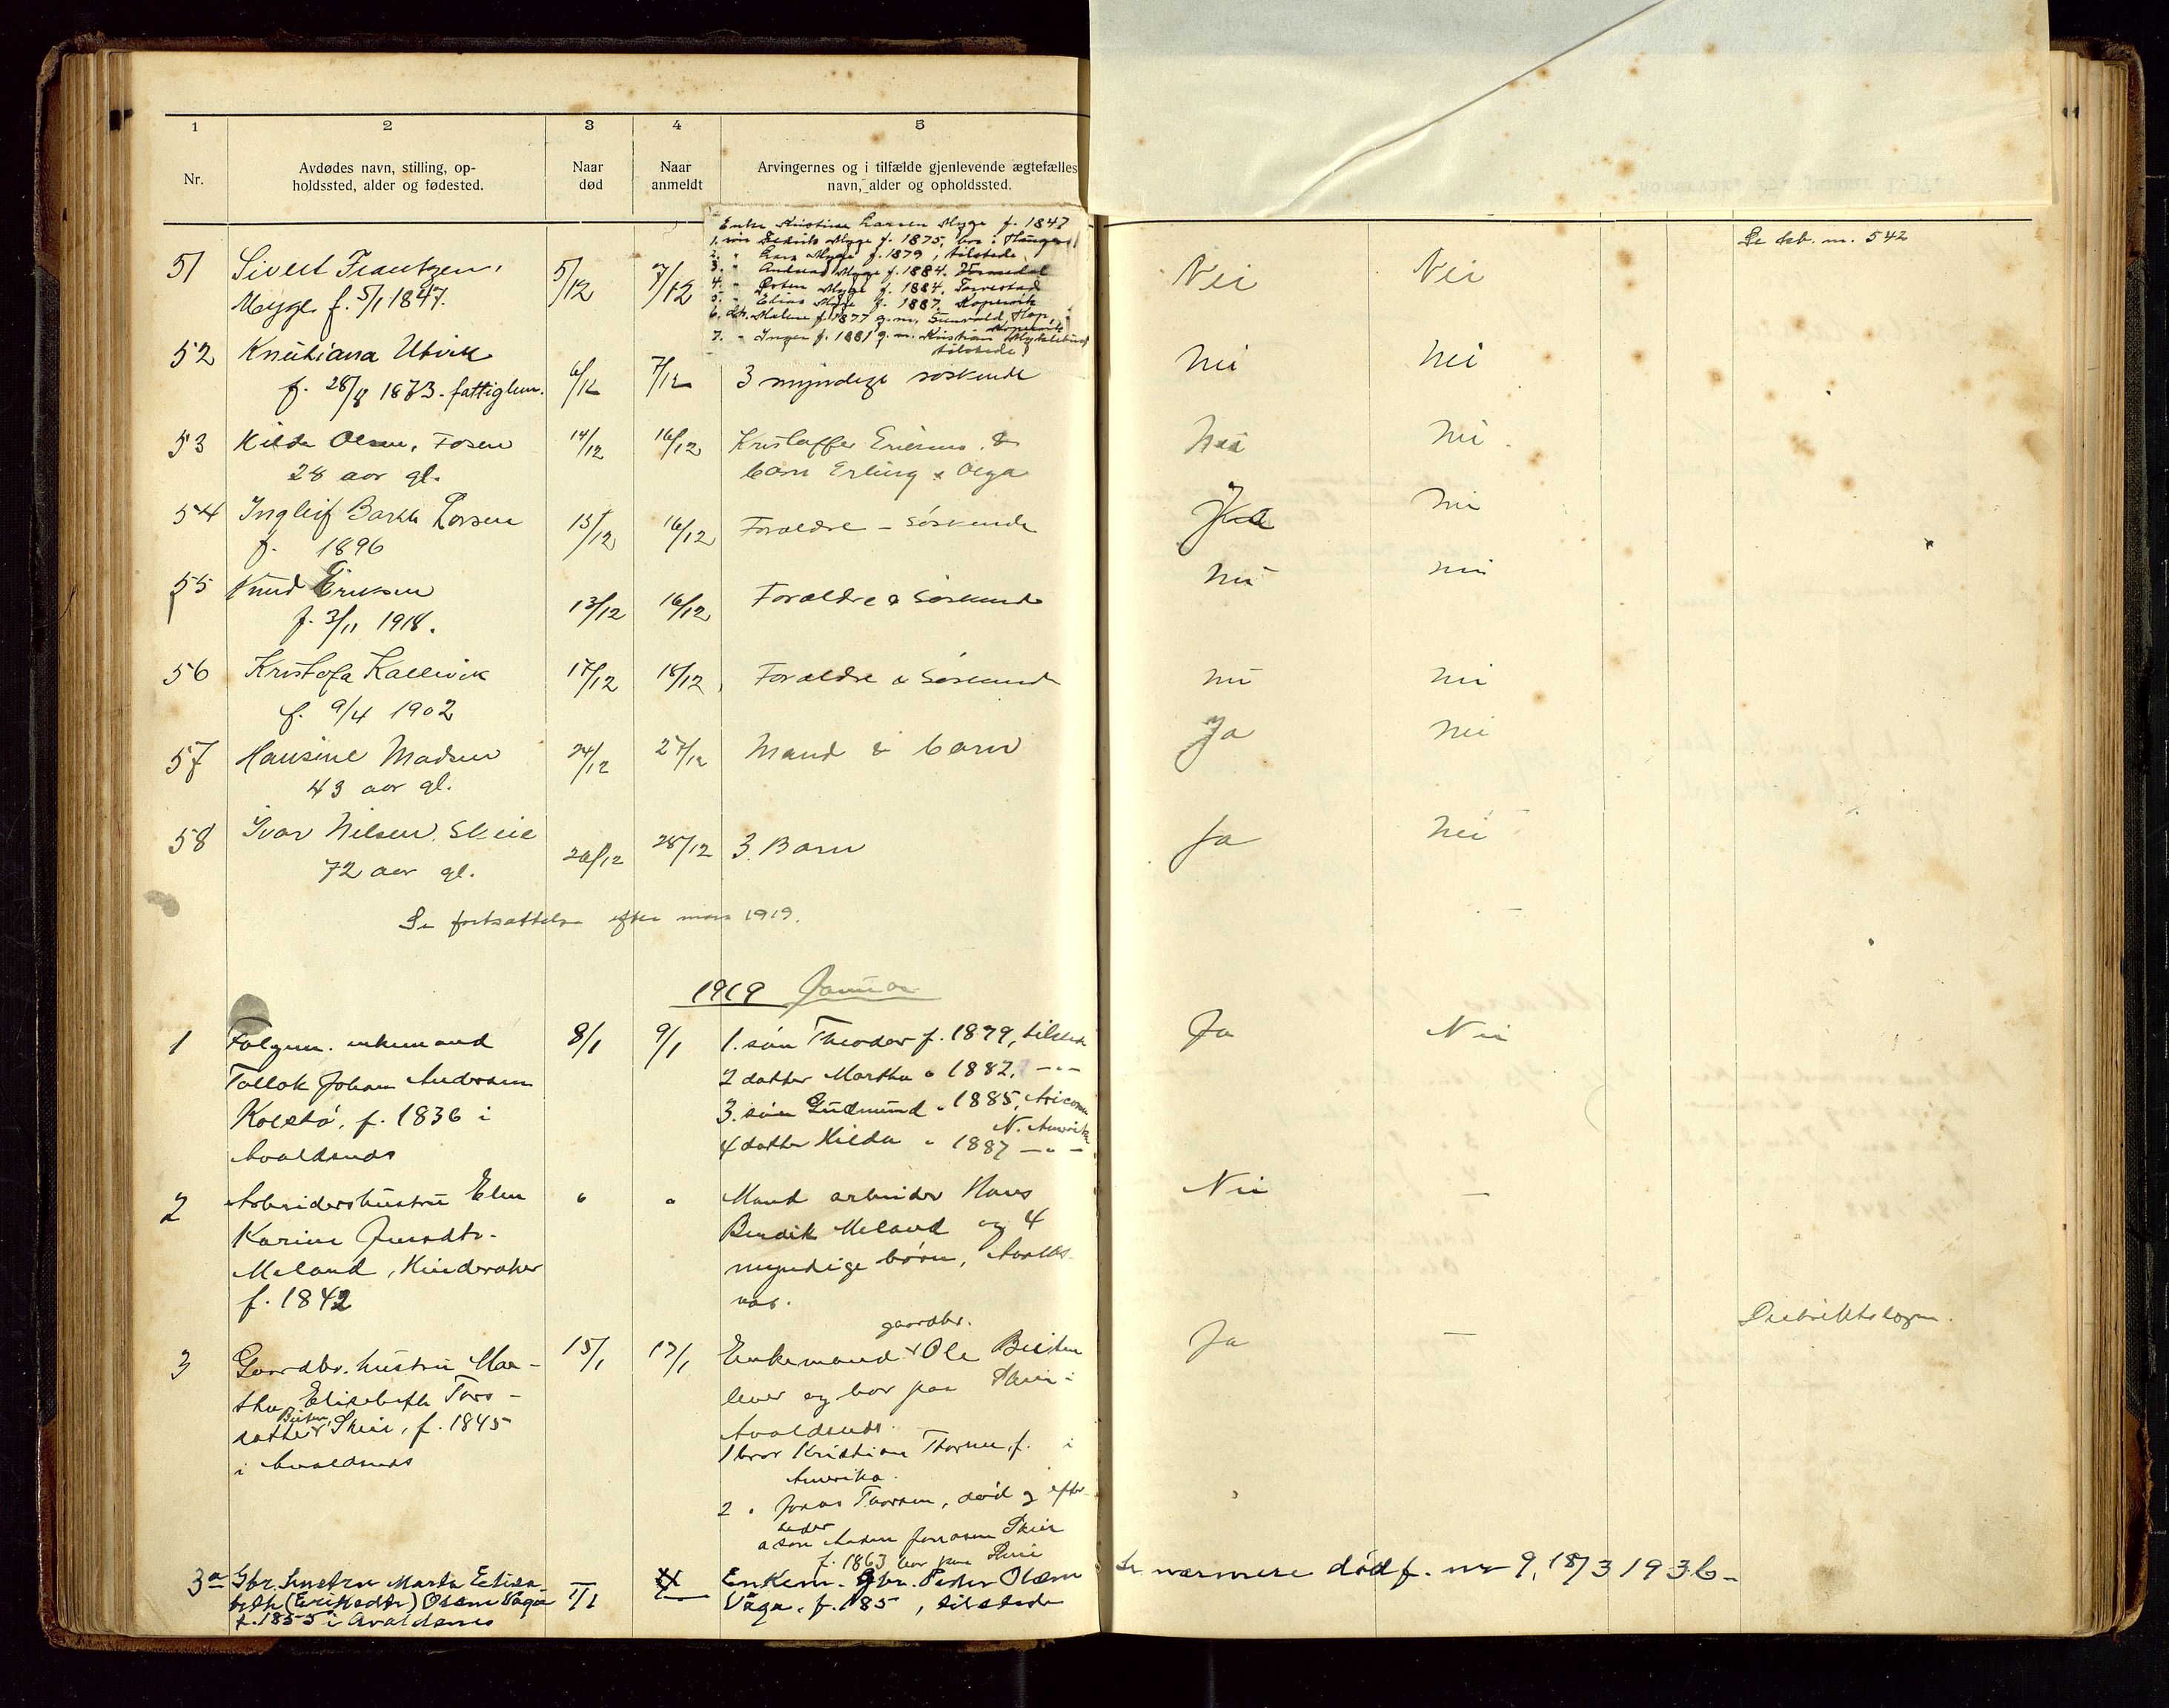 1 2 3 4 5
Nr.
Avdødes navn, stilling, op-
holdssted, alder og fødested.
Naar
død
Naar
anmeldt
Arvingernes og i tilfælde gjenlevende ægtefælles
navn, alder og opholdssted.
Enke Kristine Larsen Mygge f. 1847
1. søn Fredrik Mygge f. 1875, bor i
2. " Lars Mygge f. 1879, tilstede
3. " Andreas Mygge f. 1884.
4. " Østen Mygge f. 1884, Torvestad
5. " Elias Mygge f. 1887, Kopervik
6. dtr. Malene f. 1877 g.m. Hop,
Kopervik
7. " Inger f. 1881 g.m. Kristian
tilstede
Se skb. nr. 542
51 Sivert Frantzen, 5/12 7/12 Nei Nei
Mygge f. 5/1 1847.
52 Knutiana Utvik nei nei
f. 28/8 1873. fattiglem. 6/12 7/12 3 myndige søskende
53 Hilda Olsen, Fosen 14/12 16/12 Kristoffer Eriksen & nei nei
28 aar gl. barn Erling & Olga
54 Ingleif Larsen 15/12 16/12 Forældre - Søskende Ja nei
f. 1896
55 Knud Eriksen nei nei
f. 3/11 1918. 13/12 16/12 Forældre & Søskende
56 Kristofa Kallevik 17/12 18/12 Forældre & Søskende nei nei
f. 9/4 1902
57 Hansine Madsen 24/12 27/12 Mand & barn Ja nei
43 aar gl.
58 Ivar Nilsen Skeie 26/12 28/12 3 Barn Ja nei
72 aar gl.
Se fortsættelse efter mars 1919.
1919 Januar
1 Folgem. enkemand 8/1 9/1 1. søn Theodor f. 1879, tilstede Ja Nei
Tollak Johan Andersen 2 datter Martha " 1882, - " -
Kolstø, f. 1836 i 3. søn Gudmund " 1885,
N. Amerika
Avaldsnes 4 datter Hilda " 1887 - " -
2 Arbeiderhustru Elen " " Mand arbeider Hans Nei -
Karine Bendik Meland og 4
Meland, Hinderaker myndige børn, Avalds-
f. 1842 nes.
gaardbr.
Distriktslægen.
3 Gaardbr. hustru Mar- 15/1 17/1 Enkemand Ole Ja -
tha Elisabeth Tors- lever og bor paa Skeie i
datter Skeie, f. 1845 Avaldsnes.
i Avaldsnes 1 bror Kristian Thorsen, f. i
Amerika.
2 " Jonas Thorsen, død og efter-
lader
a søn Jonasen Skeie
f. 1863 bor paa Skeie
3a Gbr. hustru Marta Elisa- Enkem. Gbr. Peder Olsen Se nærmere dødf. nr 9, 18/3 1936-
beth (Eriksdtr) Olsen Våga Våga, f. 185 , tilstede
f. 1855 i Avaldsnes